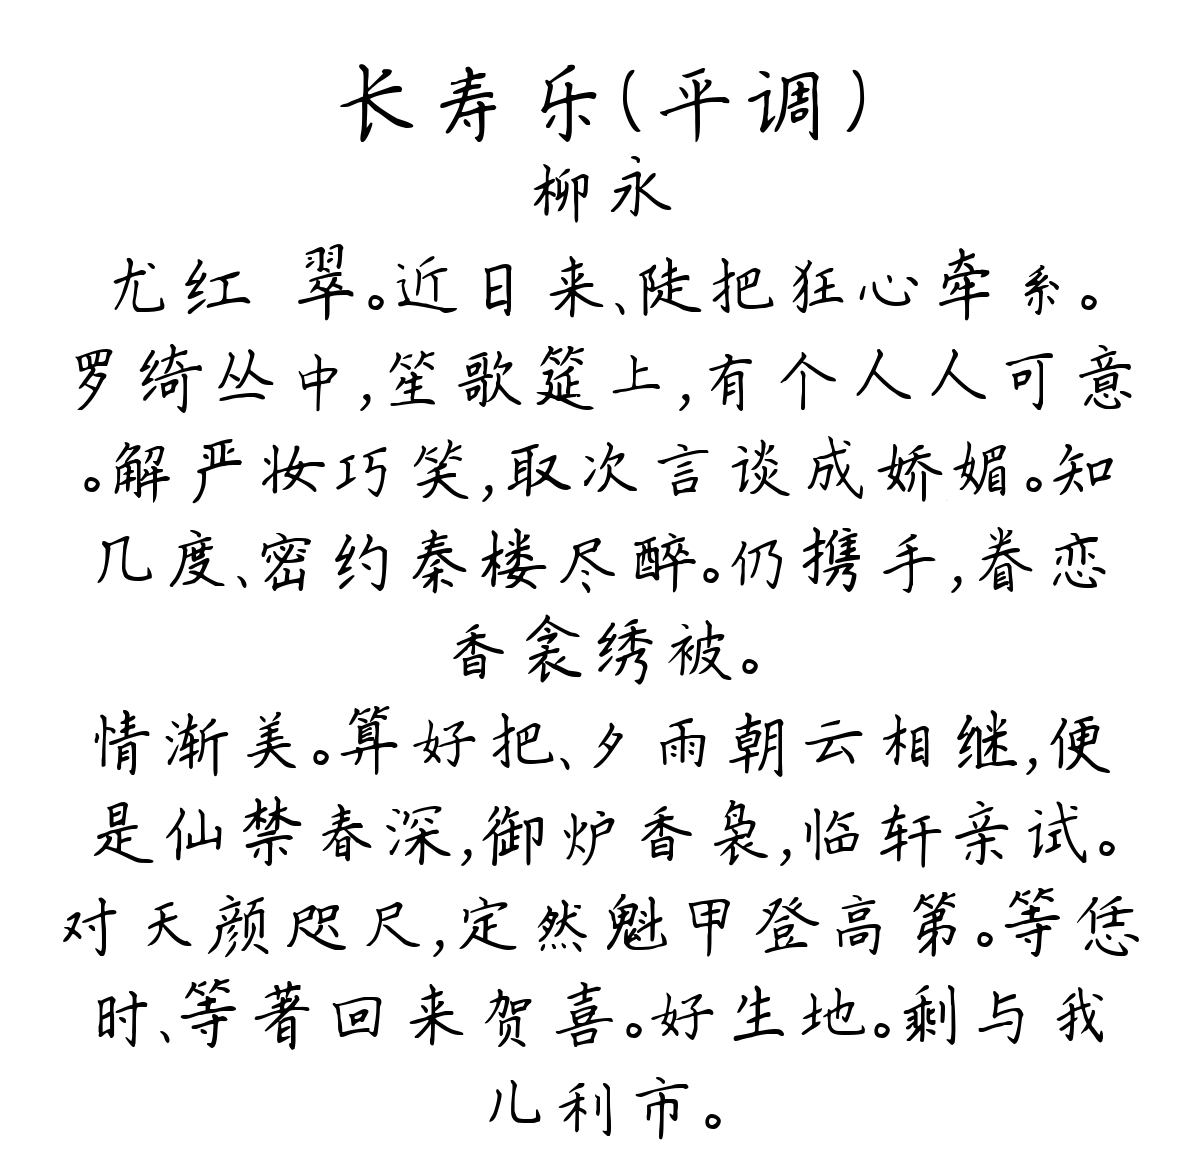 长寿乐(平调)
柳永
尤红 翠。近日来、陡把狂心牵系。
罗绮丛中,笙歌筵上,有个人人可意
。解严妆巧笑,取次言谈成娇媚。知
几度、密约秦楼尽醉。仍携手,眷恋
香衾绣被。
情渐美。算好把、夕雨朝云相继,便
是仙禁春深,御炉香袅,临轩亲试。
对天颜咫尺,定然魁甲登高第。等恁
时、等著回来贺喜。好生地。剩与我
儿利市。